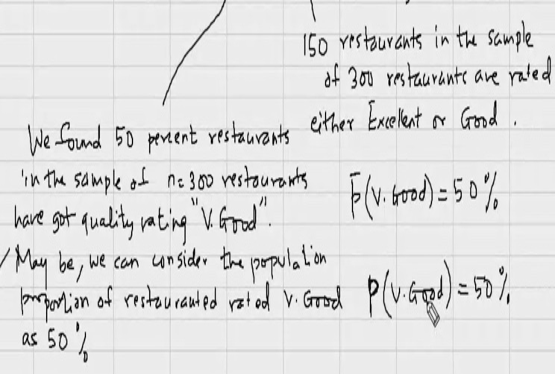 150 restaurants in the sample
of 300 restaurants are rated
either Excellent or Good.
We found 50 percent restaurants
in the sample of n=300 restaurants
have got quality rating "V. Good".
p̄(V. Good) = 50%
May be, we can consider the population
proportion of restauranted rated V. Good
as 50%
P(V. Good) = 50%